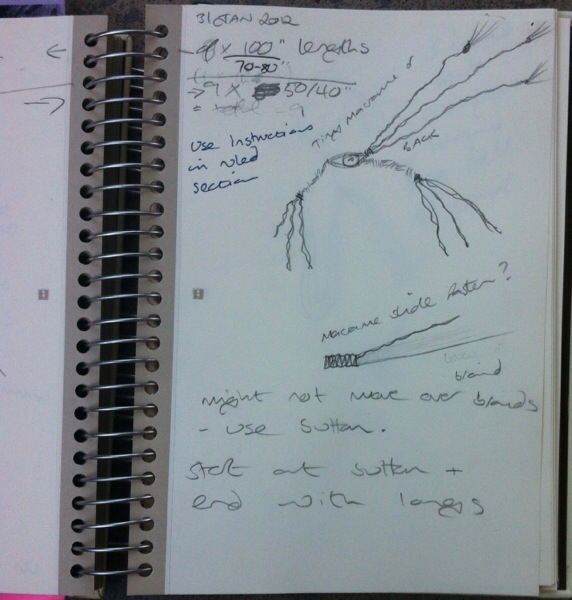 31 JAN 2012
9 x 100" lengths
70-80"
→ 9 x 50/40"
use Instructions
in ruled
section
Tiny Macrame
BACK
Macrame slide fasten?
braid
might not move over braids
- use button.
start at button +
end with loops